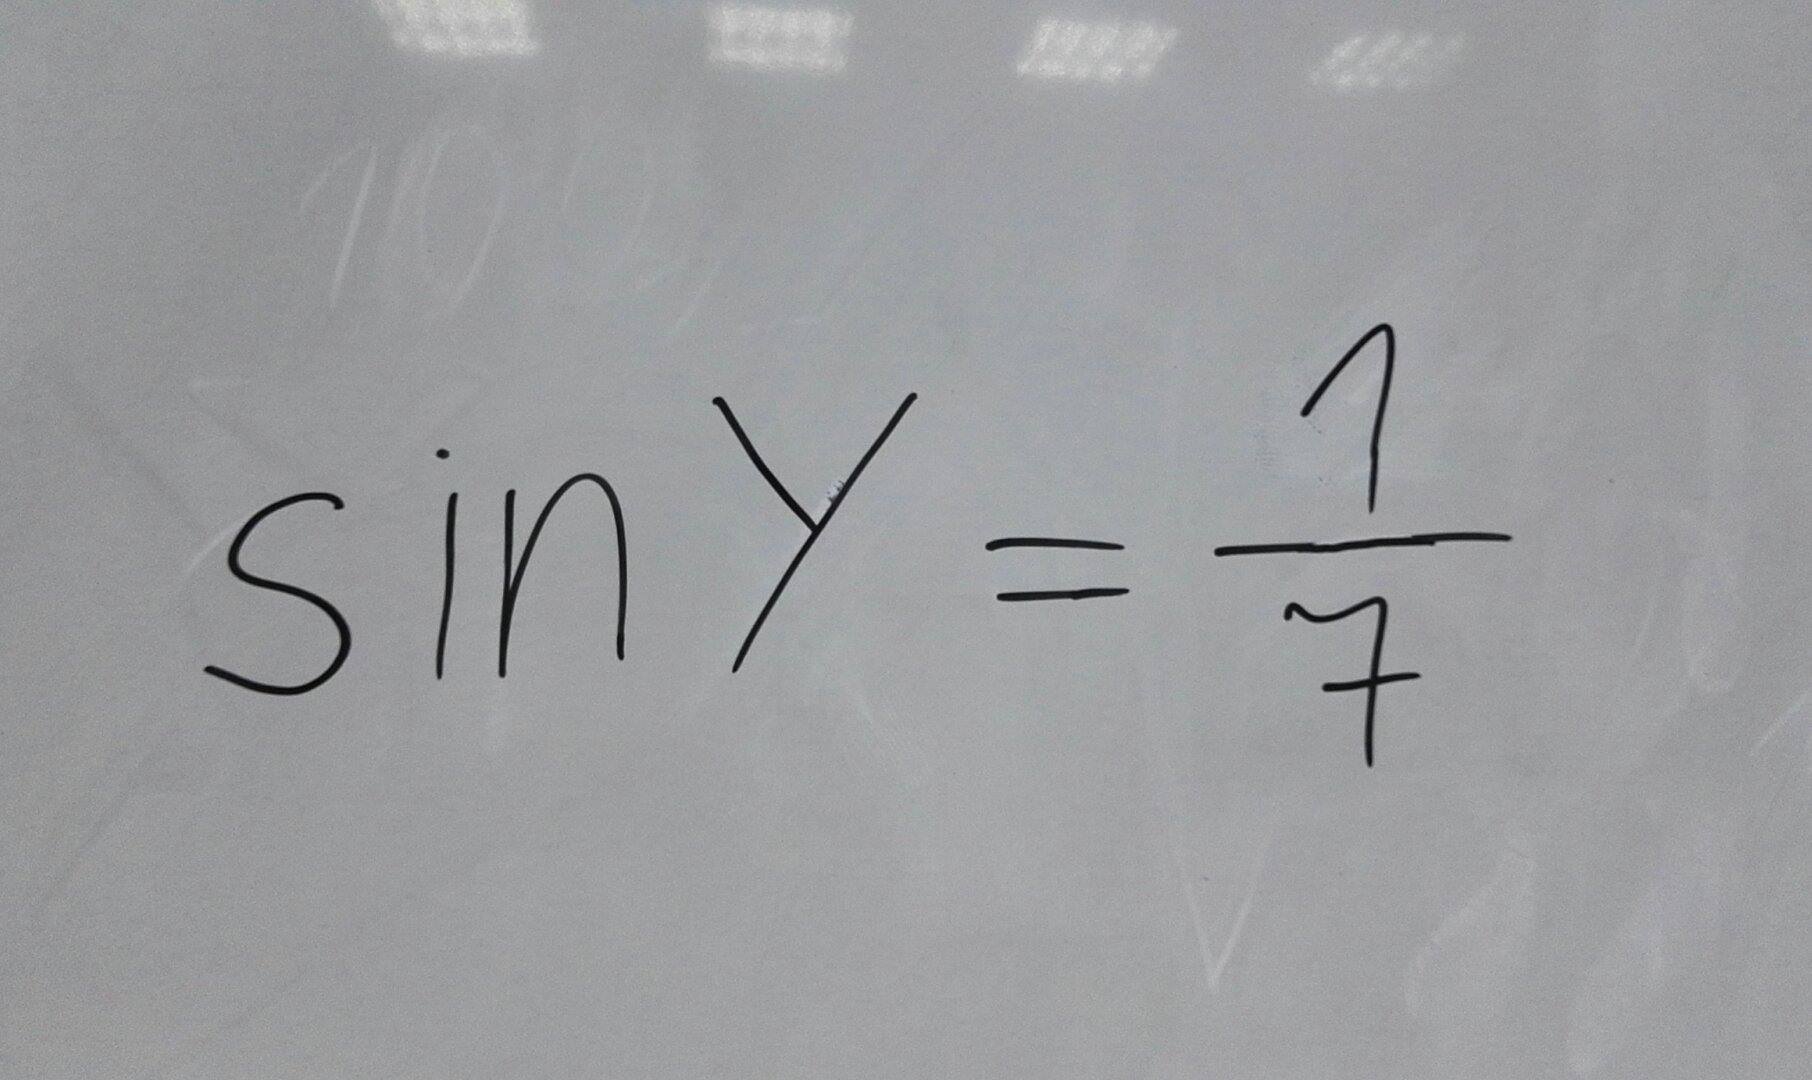 sin y = 1/7